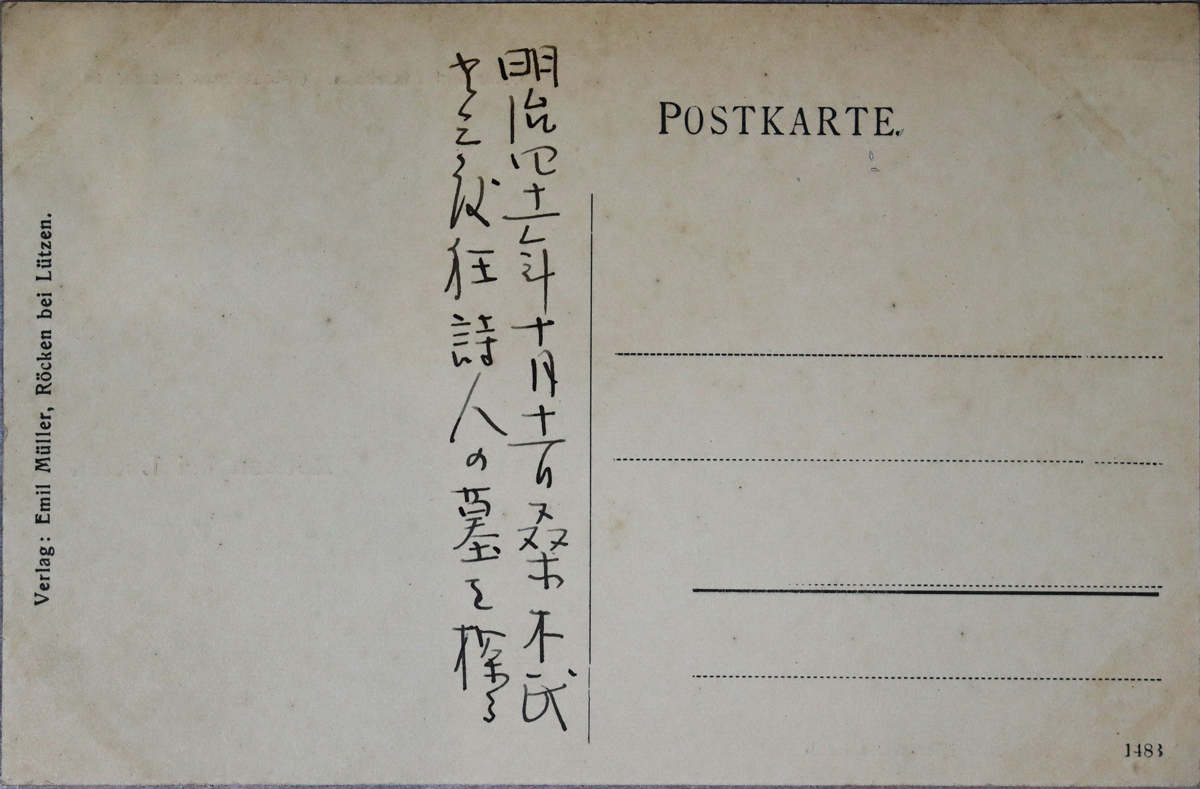 POSTKARTE.
明治四十一年十月十一日桑木氏
彼狂詩人の墓を探る
Verlag: Emil Müller, Röcken bei Lützen.
1483